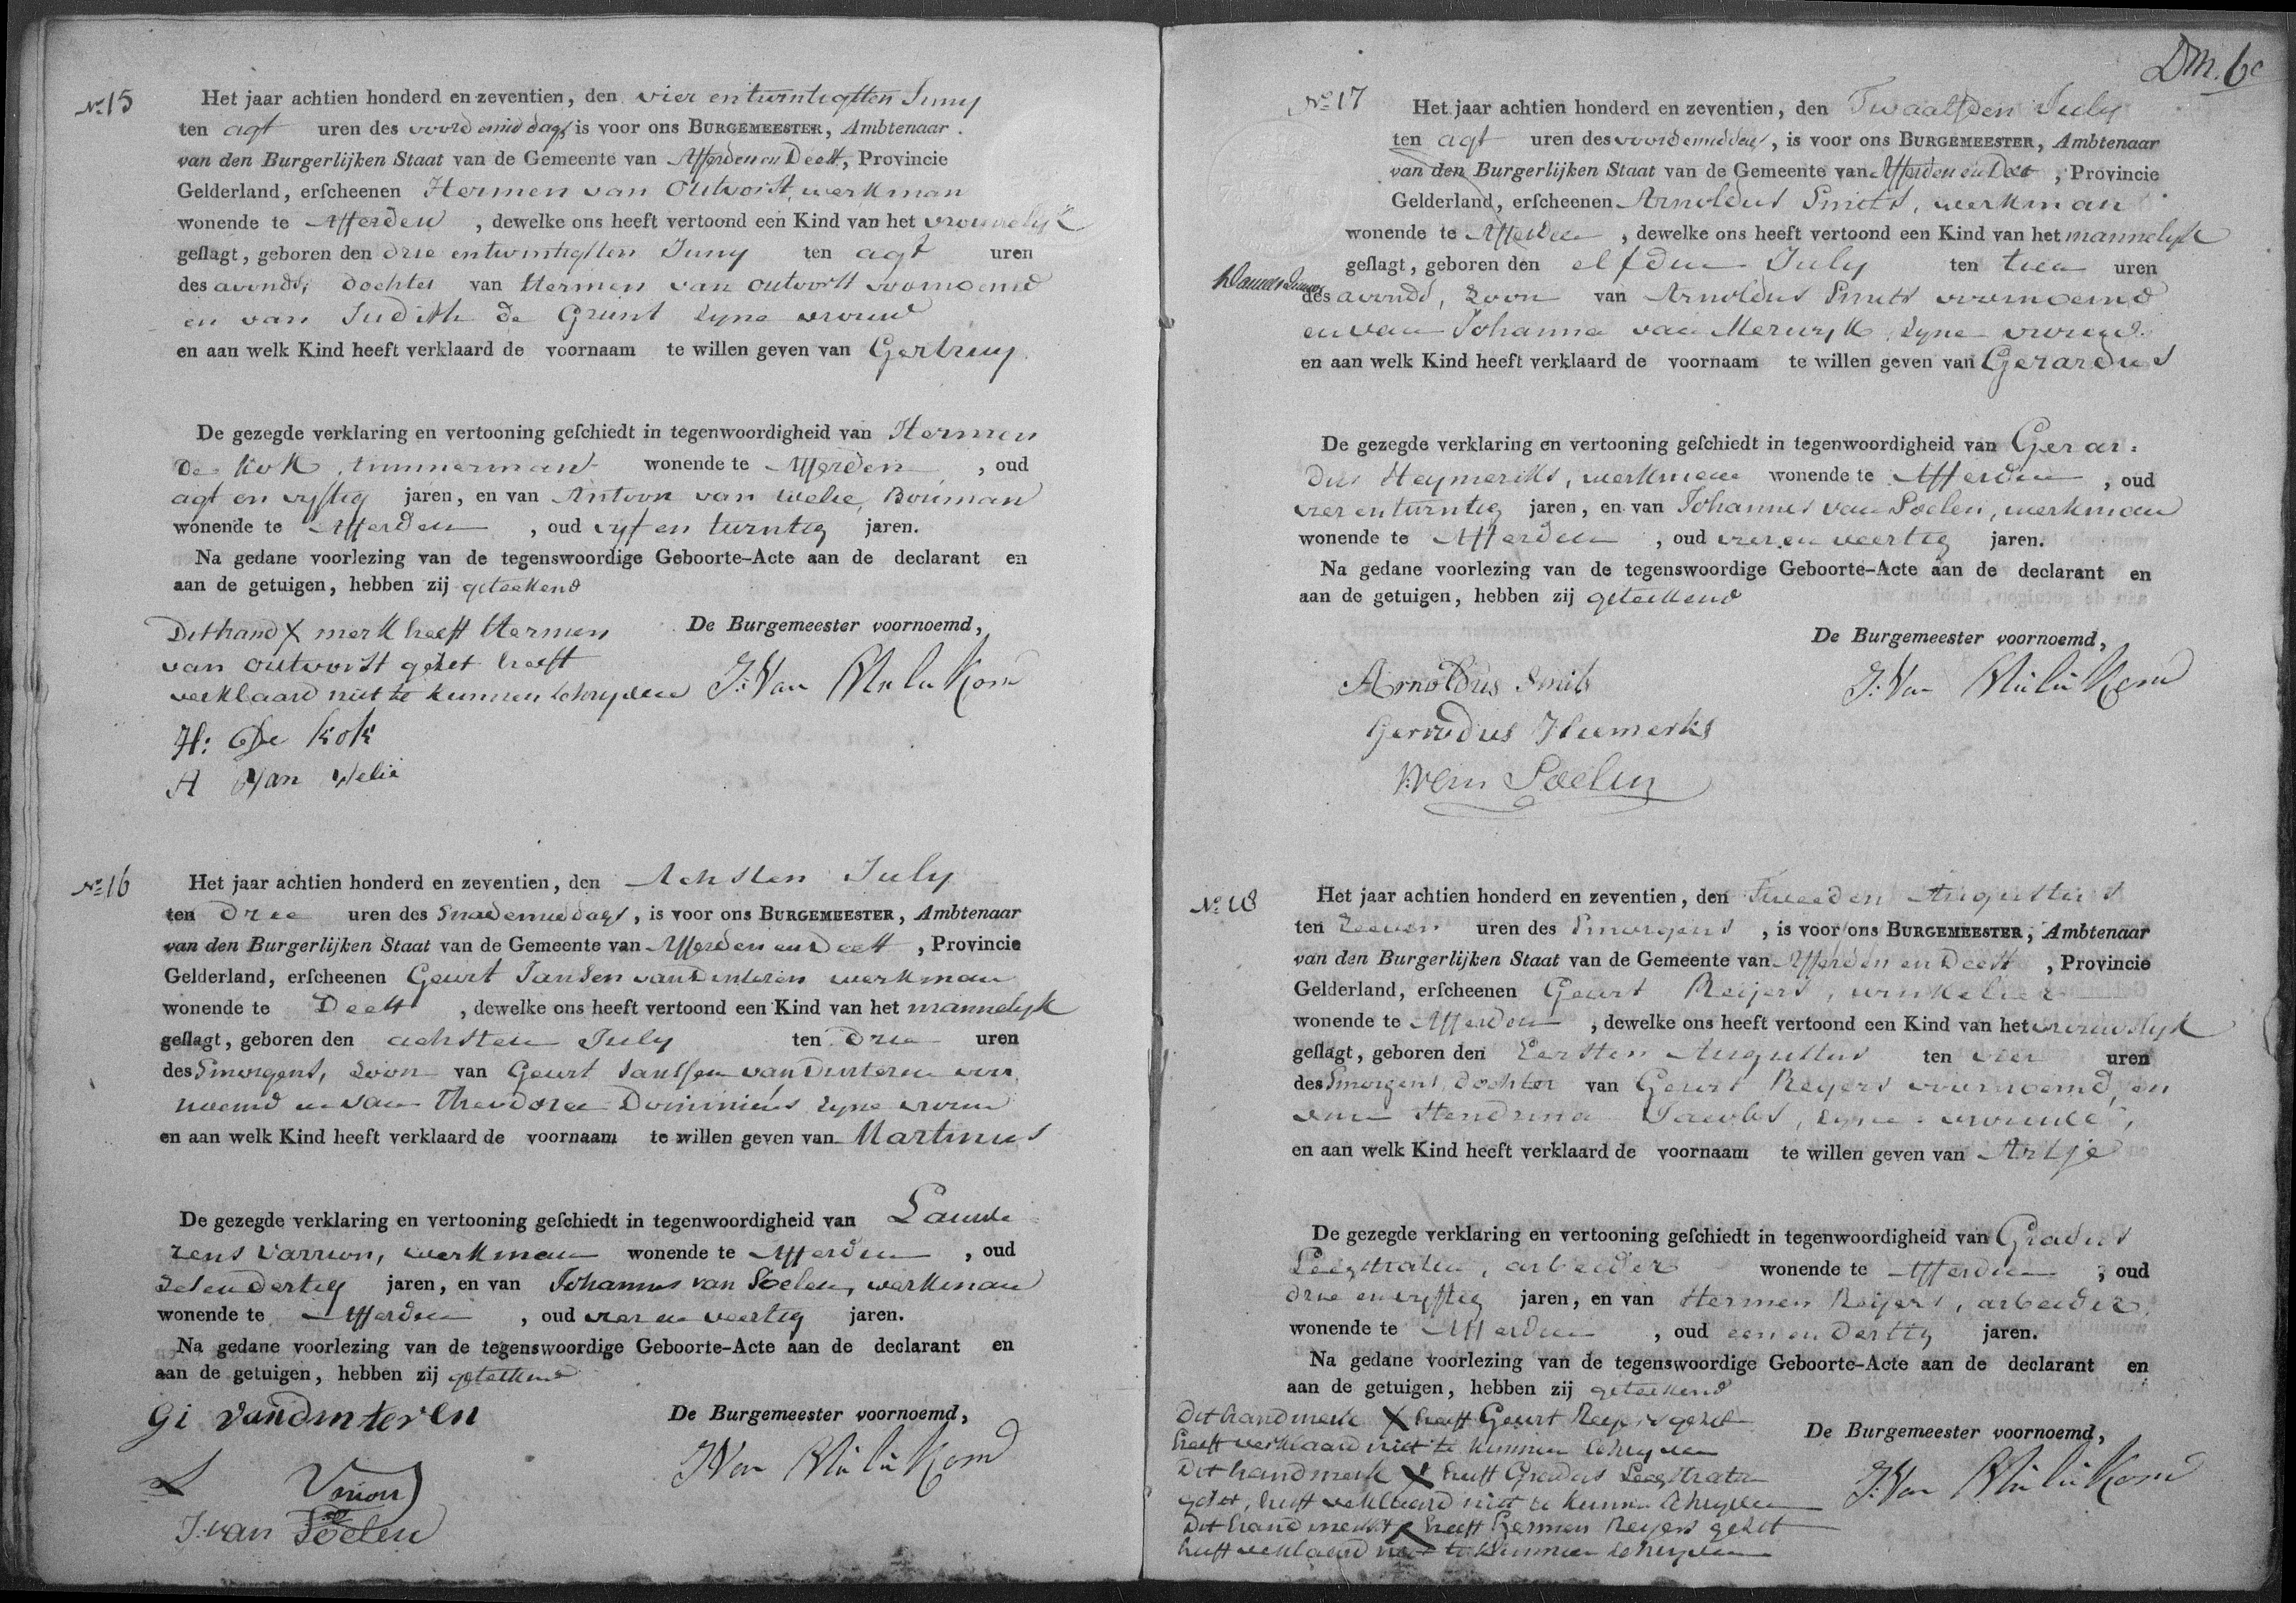 No 15
Het jaar achtien honderd en zeventien, den vier en twintigsten Juny
ten agt uren des voordemiddags is voor ons BURGEMEESTER, Ambtenaar
van den Burgerlijken Staat van de Gemeente van Afferden en Deest, Provincie
Gelderland, erscheenen Hermen van Outvorst, werkman
wonende te Afferden, dewelke ons heeft vertoond een Kind van het vrouwelyk
geslagt, geboren den drie en twintigsten Juny ten agt uren
des avonds, dochter van Hermen van Outvorst voornoemd
en van Judith de Grunt zyne vrouw
en aan welk Kind heeft verklaard de voornaam te willen geven van Gertruy
De gezegde verklaring en vertooning geschiedt in tegenwoordigheid van Hermen
de Kok, timmerman wonende te Afferden, oud
agt en vyftig jaren, en van Antoon van Welie, Bouman
wonende te Afferden, oud vyf en twintig jaren.
Na gedane voorlezing van de tegenswoordige Geboorte-Acte aan de declarant en
aan de getuigen, hebben zij geteekend
Dit hand X merk heeft Hermen
van Outvorst gezet heeft
verklaard niet te kunnen schryven
De Burgemeester voornoemd,
J: Van
H: De Kok
A Van Welie
No 16
Het jaar achtien honderd en zeventien, den Achsten July
ten drie uren des Snademiddags, is voor ons BURGEMEESTER, Ambtenaar
van den Burgerlijken Staat van de Gemeente van Afferden en Deest, Provincie
Gelderland, erscheenen Geurt Jansen van Dinteren werkman
wonende te Deest, dewelke ons heeft vertoond een Kind van het mannelyk
geslagt, geboren den achsten July ten drie uren
des Smorgens, zoon van Geurt Janssen van Dinteren voor
noemd en van Theodora Dominicus zyne vrouw
en aan welk Kind heeft verklaard de voornaam te willen geven van Martinus
De gezegde verklaring en vertooning geschiedt in tegenwoordigheid van
werkman wonende te Afferden, oud
zes en dertig jaren, en van Johannes van Soelen, werkman
wonende te Afferden, oud vier en veertig jaren.
Na gedane voorlezing van de tegenswoordige Geboorte-Acte aan de declarant en
aan de getuigen, hebben zij geteekend
Gi van dinteren
De Burgemeester voornoemd,
J Van
L
J. van Soelen
Dm. 6e
No 17
Het jaar achtien honderd en zeventien, den Twaalfden July
ten agt uren des voordemiddags, is voor ons BURGEMEESTER, Ambtenaar
van den Burgerlijken Staat van de Gemeente van Afferden en Deest, Provincie
Gelderland, erscheenen Arnoldus Smits, werkman
wonende te Afferden, dewelke ons heeft vertoond een Kind van het mannelyk
geslagt, geboren den elfden July ten twee uren
des avonds, zoon van Arnoldus Smits voornoemd
en van Johanna van Merwyk, zyne vrouw
en aan welk Kind heeft verklaard de voornaam te willen geven van Gerardus
De gezegde verklaring en vertooning geschiedt in tegenwoordigheid van Gerar-
dus Heymeriks, werkman wonende te Afferden, oud
vier en twintig jaren, en van Johannes van Soelen, werkman
wonende te Afferden, oud vier en veertig jaren.
Na gedane voorlezing van de tegenswoordige Geboorte-Acte aan de declarant en
aan de getuigen, hebben zij geteekend
De Burgemeester voornoemd,
Arnoldus Smits
J: Van
Gerradus Heimerks
Soelen
No 18
Het jaar achtien honderd en zeventien, den Tweeden Augustus
ten zeeven uren des Smorgens, is voor ons BURGEMEESTER, Ambtenaar
van den Burgerlijken Staat van de Gemeente van Afferden en Deest, Provincie
Gelderland, erscheenen Geurt Reijers, winkelier
wonende te Afferden, dewelke ons heeft vertoond een Kind van het vrouwelyk
geslagt, geboren den Eersten Augustus ten vier uren
des Smorgens, dochter van Geurt Reyers voornoemd, en
van Hendrina Jacobs, zyne vrouwe,
en aan welk Kind heeft verklaard de voornaam te willen geven van Artje
De gezegde verklaring en vertooning geschiedt in tegenwoordigheid van Gradus
Leegstraten, arbeider wonende te Afferden, oud
drie en vyftig jaren, en van Hermen Reijers, arbeider
wonende te Afferden, oud een en dertig jaren.
Na gedane voorlezing van de tegenswoordige Geboorte-Acte aan de declarant en
aan de getuigen, hebben zij geteekend
Dit handmerk X heeft Geurt Reyers gezet
heeft verklaard niet te kunnen schryven
De Burgemeester voornoemd,
Dit handmerk X heeft Gradus Leegstraten
gezet, heeft verklaard niet te kunnen schryven
J: Van
Dit handmerk X heeft Hermen Reyers gezet
heeft verklaard niet te kunnen schryven